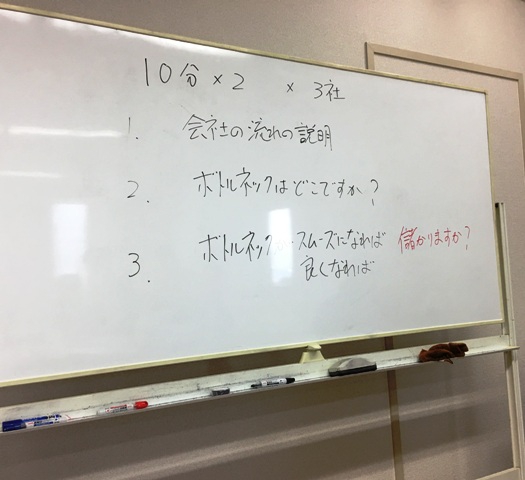 10分×2 × 3社
1. 会社の流れの説明
2. ボトルネックはどこですか?
3. ボトルネック スムーズになれば 儲かりますか?
良くなれば